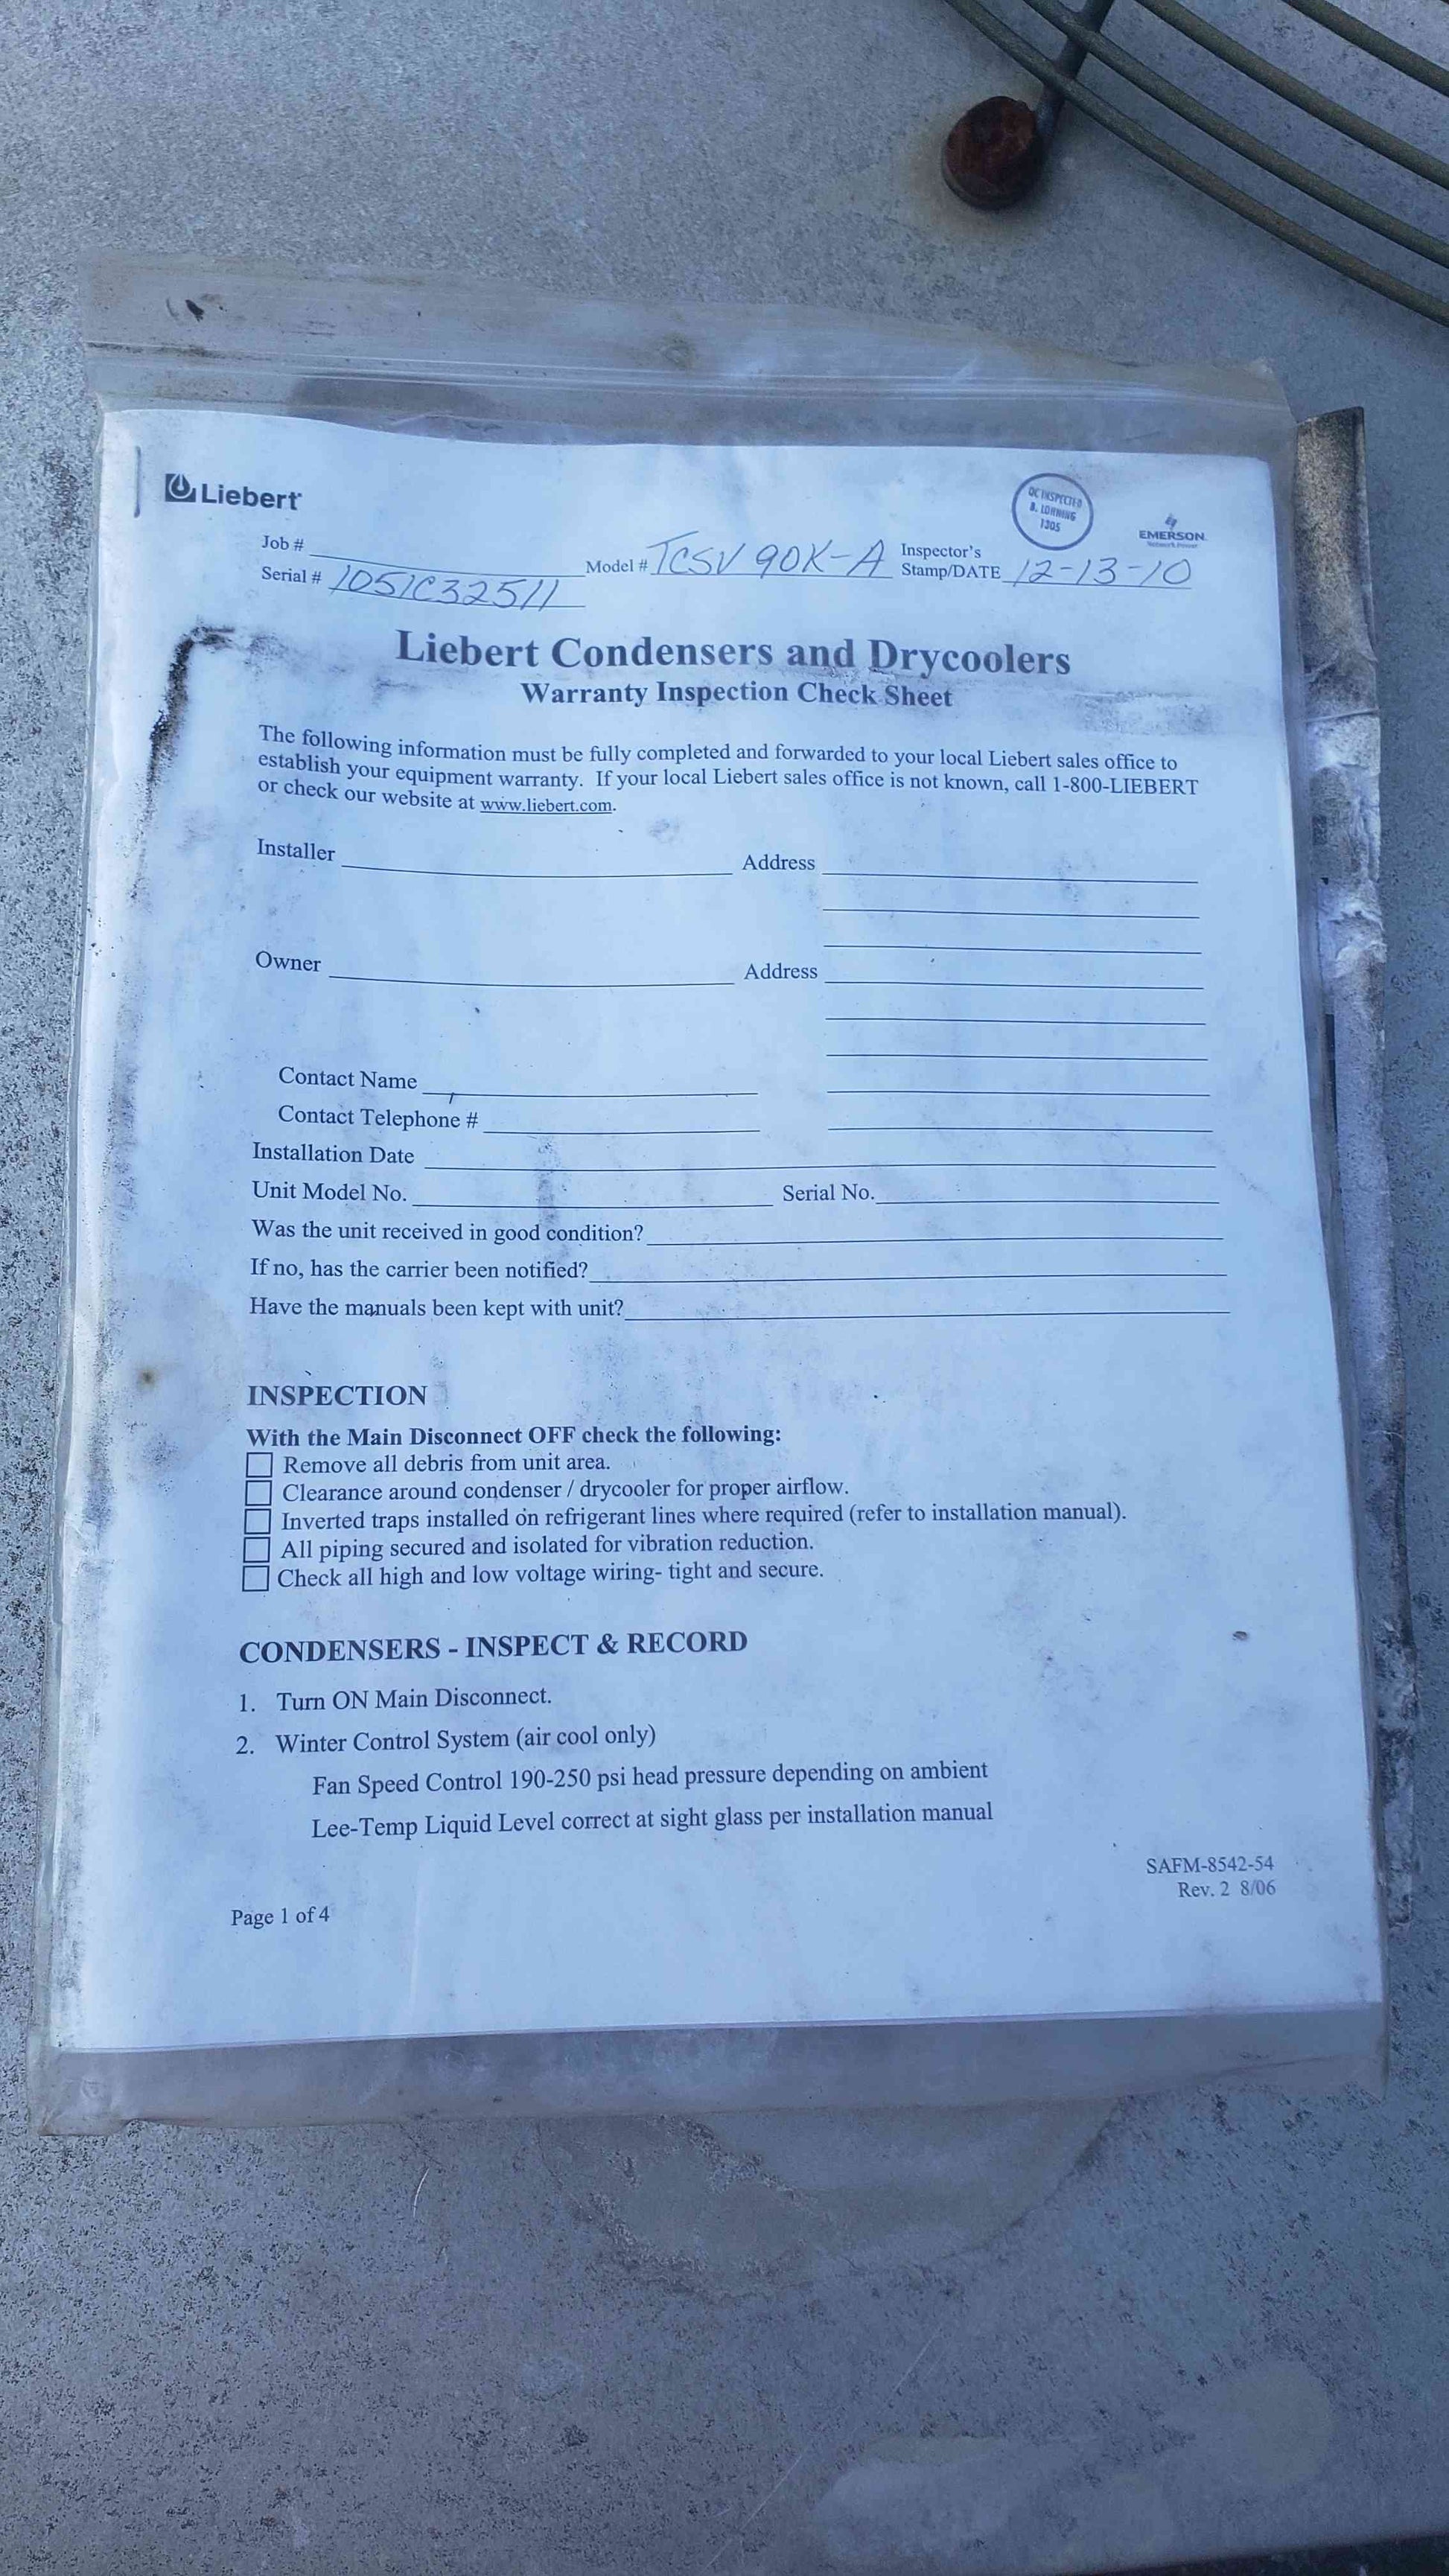 Liebert
QC INSPECTED
1305
EMERSON
Network Power
Job #
Model # TCSV 90K-A
Inspector's
Stamp/DATE 12-13-10
Serial # 1051C32511
Liebert Condensers and Drycoolers
Warranty Inspection Check Sheet
The following information must be fully completed and forwarded to your local Liebert sales office to
establish your equipment warranty. If your local Liebert sales office is not known, call 1-800-LIEBERT
or check our website at www.liebert.com.
Installer
Address
Owner
Address
Contact Name
Contact Telephone #
Installation Date
Unit Model No.
Serial No.
Was the unit received in good condition?
If no, has the carrier been notified?
Have the manuals been kept with unit?
INSPECTION
With the Main Disconnect OFF check the following:
Remove all debris from unit area.
Clearance around condenser / drycooler for proper airflow.
Inverted traps installed on refrigerant lines where required (refer to installation manual).
All piping secured and isolated for vibration reduction.
Check all high and low voltage wiring- tight and secure.
CONDENSERS - INSPECT & RECORD
1. Turn ON Main Disconnect.
2. Winter Control System (air cool only)
Fan Speed Control 190-250 psi head pressure depending on ambient
Lee-Temp Liquid Level correct at sight glass per installation manual
SAFM-8542-54
Rev. 2 8/06
Page 1 of 4